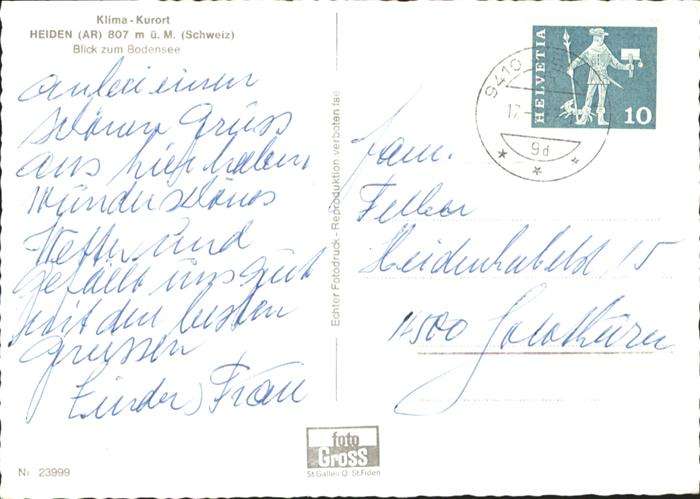 Klima - Kurort
HEIDEN (AR) 807 m ü. M. (Schweiz)
Blick zum Bodensee
einen
schönen Grüss
aus hier haben
Wünderschönes
Wetter und
gefällt uns güt
mit den besten
grüssen
Frau
Echter Fotodruck - Reproduktion verboten
HELVETIA
10
9410
17
9d
Fam.
Felber
15
4500 Solothurn
foto
Gross
St.Gallen O St.Fiden
Nr 23999